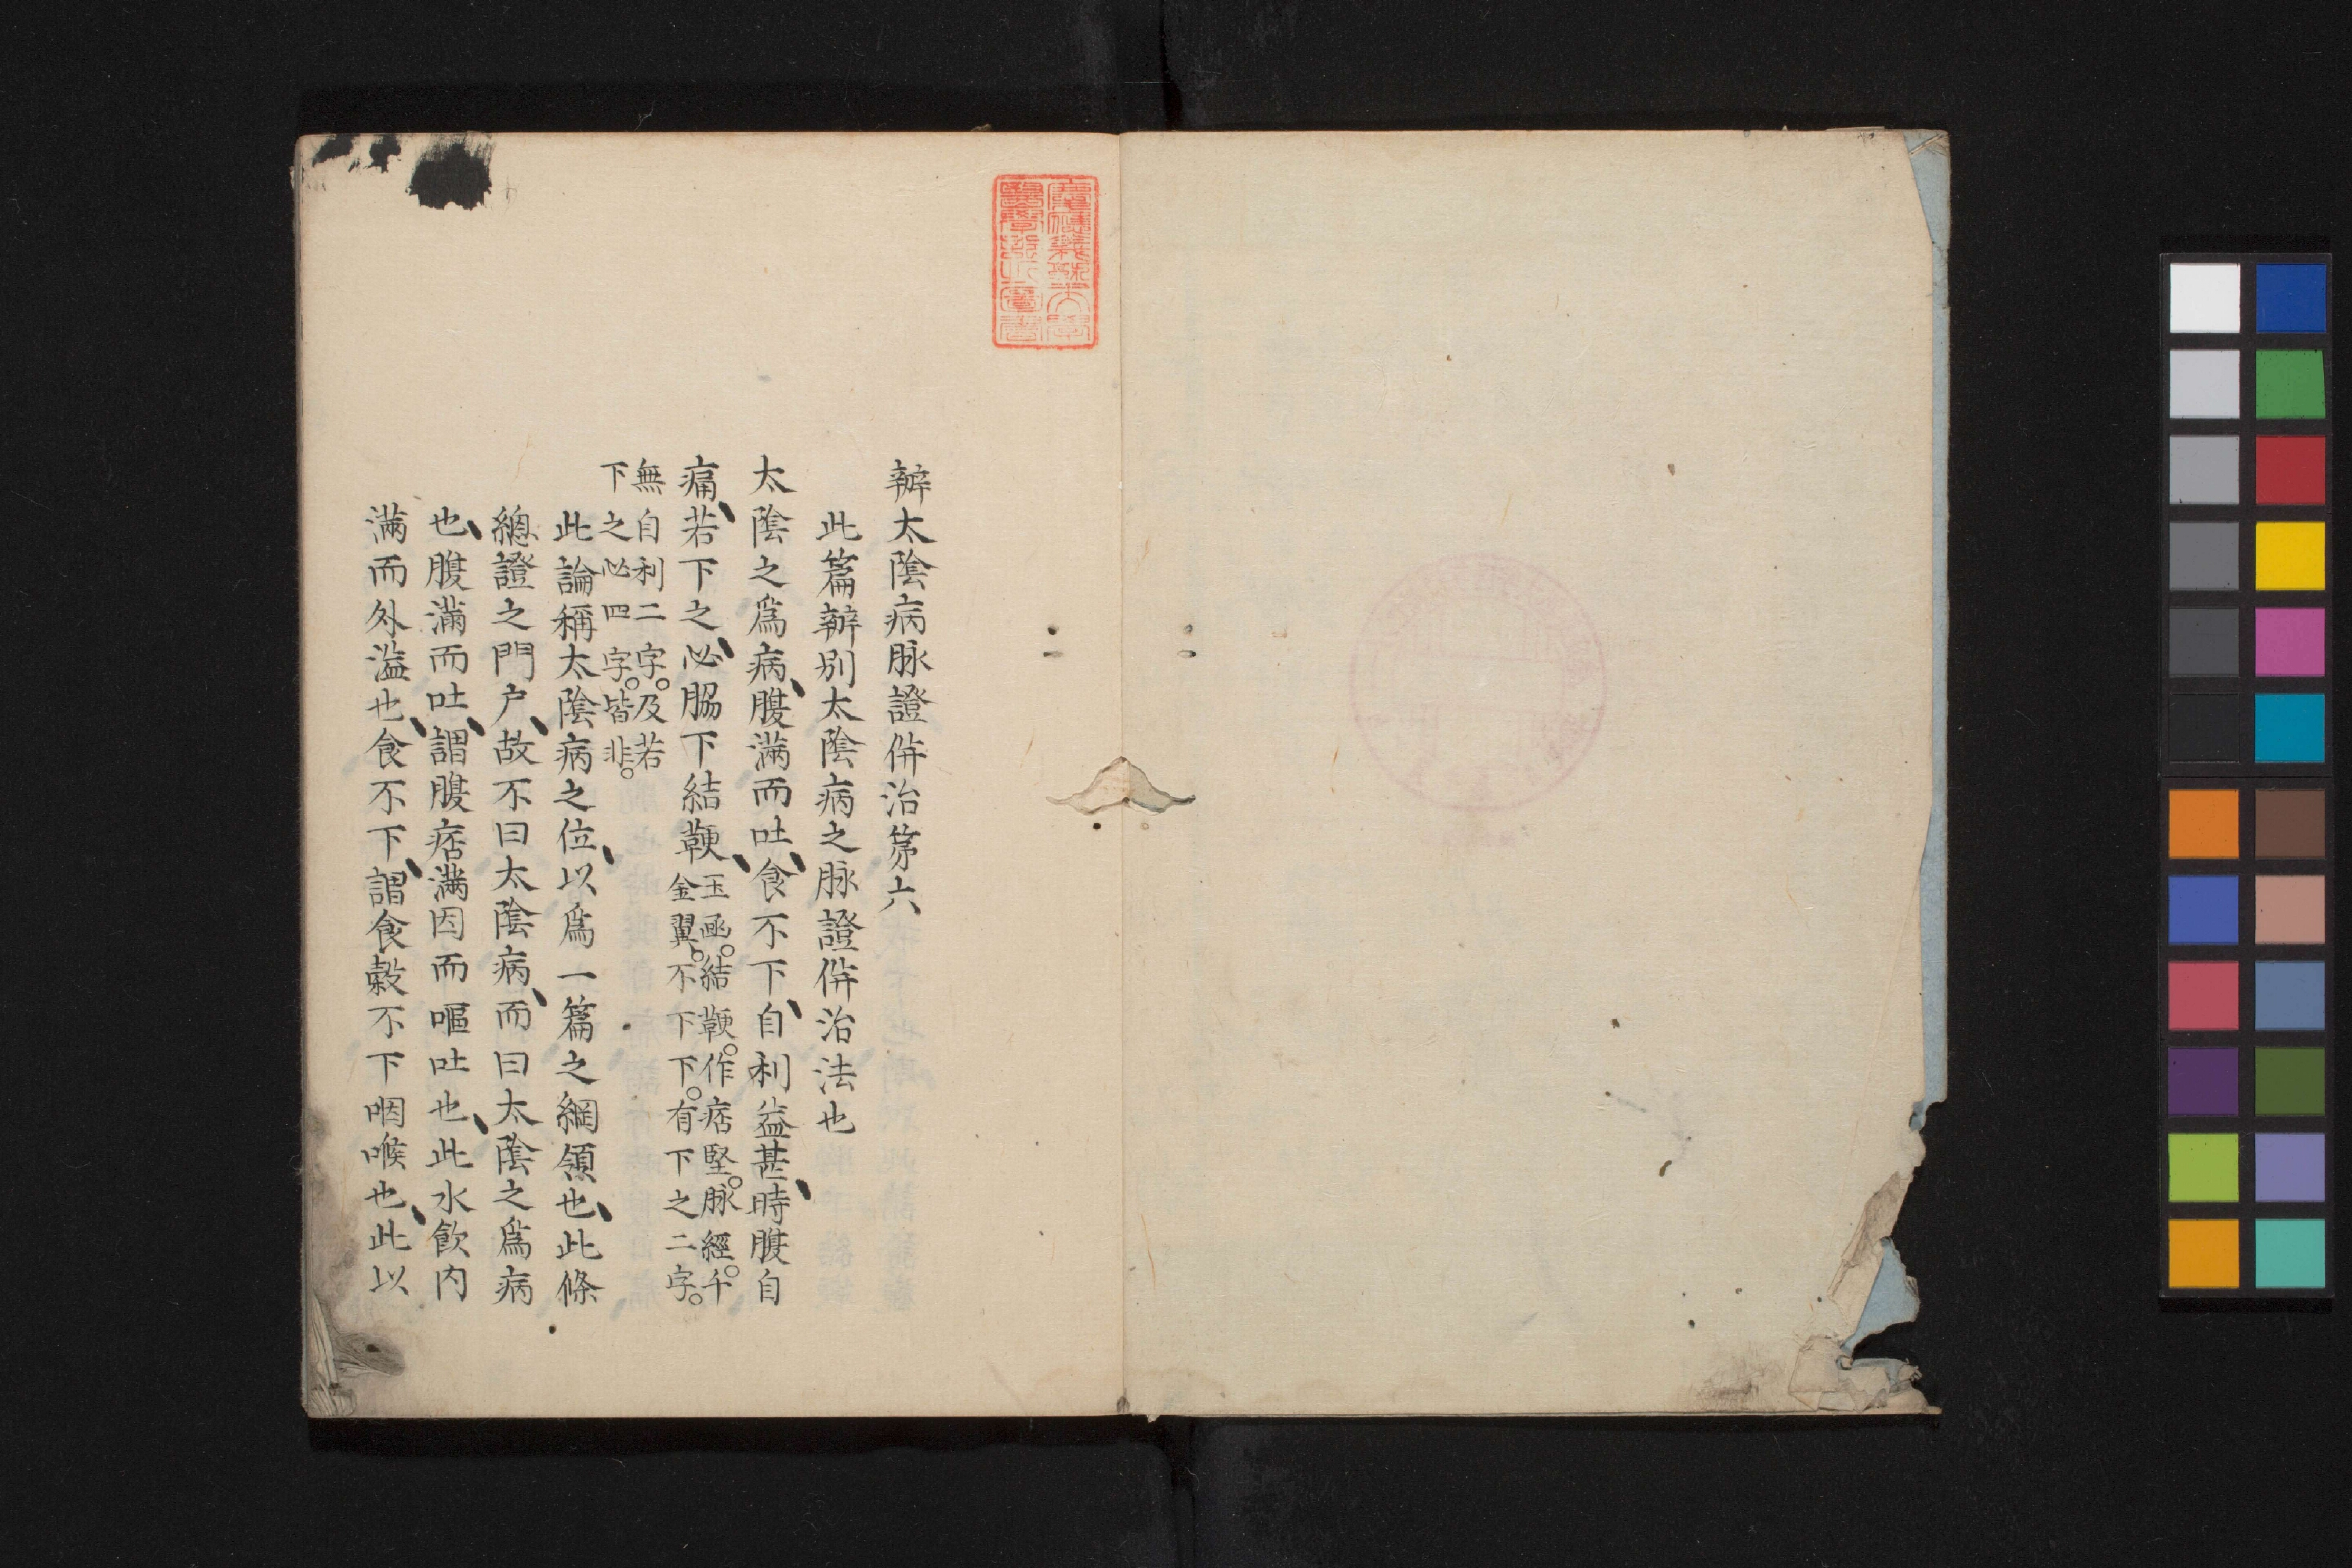 慶應義塾大學
醫學部化圖書
辨太陰病脉證併治第六
此篇辨别太陰病之脉證併治法也
太陰之爲病、腹滿而吐、食不下、自利益甚、時腹自
痛、若下之、必脇下結鞕、
玉函。結鞕。作痞堅。脉經。千
金翼。不下下。有下之二字。
無自利二字。及若
下之必四字。皆非。
此論稱太陰病之位、以爲一篇之綱領也、此條
總證之門户、故不曰太陰病、而曰太陰之爲病
也、腹滿而吐、謂腹痞滿因而嘔吐也、此水飲内
滿而外溢也、食不下、謂食穀不下咽喉也、此以